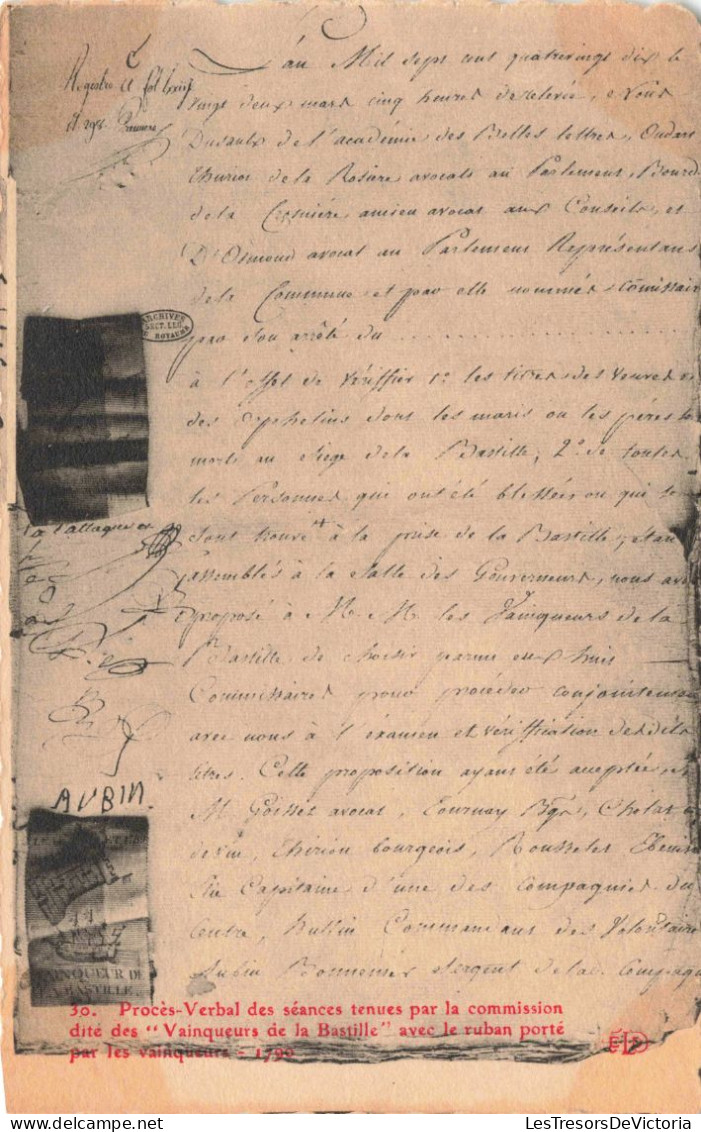 L'an Mil sept cent quatrevingt dix le
Registre
vingt deux mars cinq heures de relevée, Nous
Dusaulx de l'académie des Belles lettres, Oudart
Thuriot de la Rosiere avocats au Parlement, Bourd
de la Crosnière ancien avocat aux Conseils, et
D'Osmond avocat au Parlement Représentans
de la Commune et par elle nommés Comissair
ARCHIVES
SECT. LEG.
ROYAUME
par son arrêté du ....................
à l'effet de vérifier 1º les titres des veuves et
des orphelins dont les maris ou les pères
morts au siege de la Bastille, 2º de toutes
les Personnes qui ont été blessées ou qui se
à l'attaque
sont trouvé à la prise de la Bastille, étan
assemblés à la Salle des Gouverneurs, nous av
proposé à M. M. les Vainqueurs de la
Bastille de choisir parmi eux huit
Commissaires pour procéder conjointemen
avec nous à l'examen et vérification desdits
titres. Cette proposition ayant été acceptée,
AUBIN.
M. Goisset avocat, Tournay Cholat
de vin, Thirion bourgeois, Rousselet
Elie Capitaine d'une des compagnies du
Centre, Hullin Commandant des Volontaire
Aubin Bonnemer sergent de la Compagn
VAINQUEUR DE
LA BASTILLE.
30. Procès-Verbal des séances tenues par la commission
dite des "Vainqueurs de la Bastille" avec le ruban porté
par les vainqueurs - 1790
ELD
LesTresorsDeVictoria